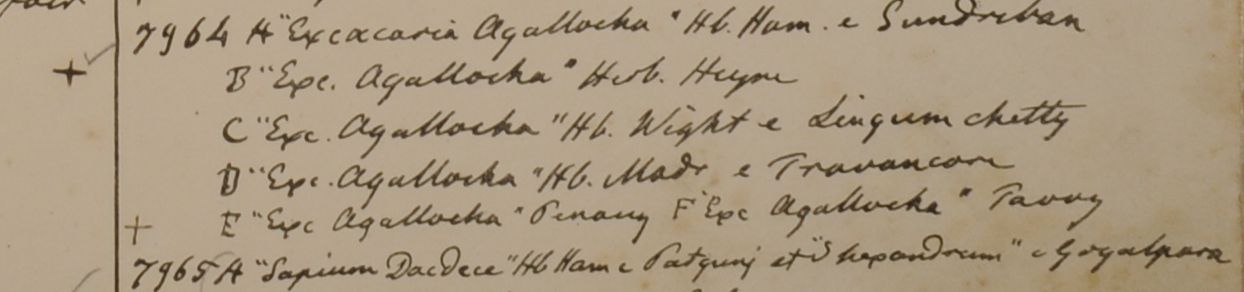 7964 A "Excacaria Agallocha" Hb. Ham. e Sundriban
B "Exc. Agallocha" Herb. Heyne
C "Exc. Agallocha" Hb. Wight e Lingum chetty
D "Exc. Agallocha" Hb. Madr e Travancore
E "Exc Agallocha" Penang F "Exc Agallocha" Tavoy
7965 A "Sapium Dacdece" Hb Ham e Patgunj et "S hexandrum" e Goyalpara